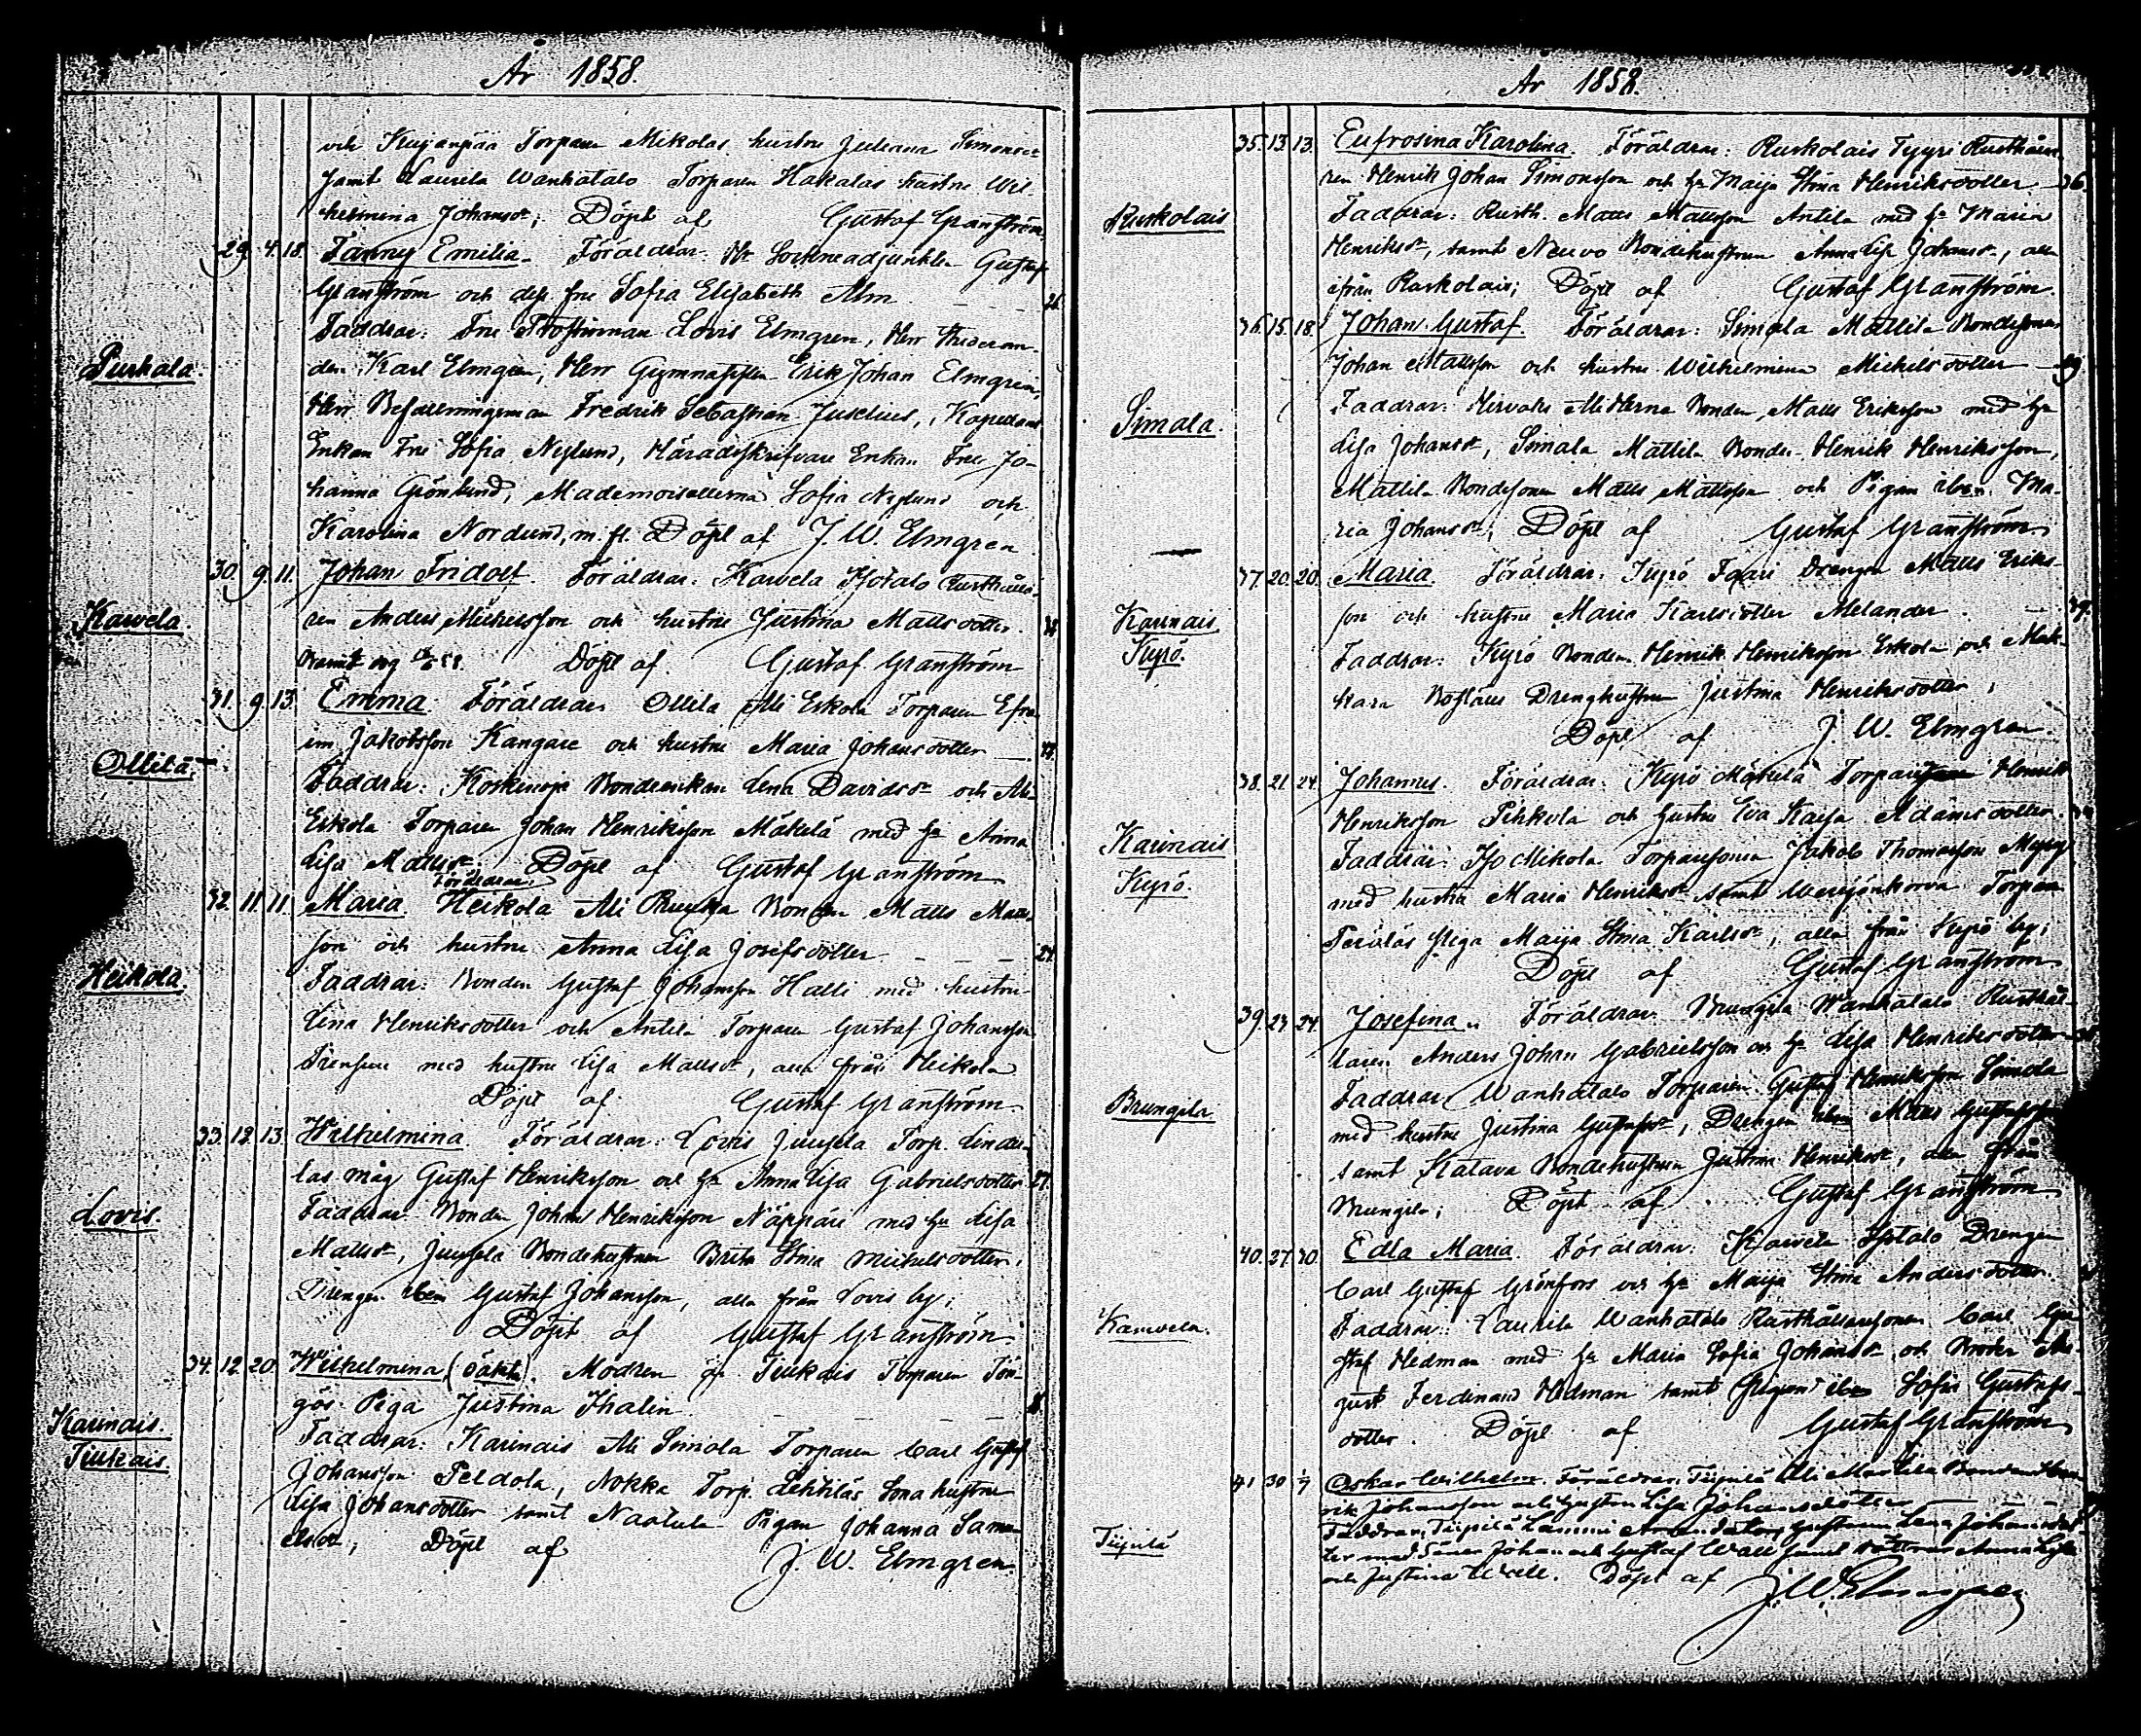 År 1858.
och Kujanpää Torparen Mikolas hustru Juliana Simonsdr
samt Laurila Wanhatalo Torparen Hakalas hustru Wil-
helmina Johansdr; Döpt af Gustaf Granström.
29. 4. 18. Fanny Emilia. Föräldrar: Hr Sockneadjunkten Gustaf
Granström och dess fru Sofia Elisabeth Alm 26.
Purkala.
Faddrar: Fru Prostinnan Lovis Elmgren, Herr Studeran-
den Karl Elmgren, Herr Gymnasisten Erik Johan Elmgren,
Herr Befallningsman Fredrik Sebastian Juselius, Kapellans
Enkan Fru Sofia Nylund, Häradsskrifvare Enkan Fru Jo-
hanna Grönlund, Mademoisellerna Sofia Nylund och
Karolina Nordlund, m. fl. Döpt af J. W. Elmgren
30. 9. 11. Johan Fridolf. Föräldrar: Karvela Isotalo Rusthålla-
Karvela.
ren Anders Michelsson och hustru Justina Mattsdotter
Döpt af Gustaf Granström
31. 9. 13. Emma. Föräldrar: Ollila Ali Eskola Torparen Efra-
im Jakobsson Kangare och hustru Maria Johansdotter
Ollila.
Faddrar: Koskenoja Bondeenkan Lena Davidsdr och Ali
Eskola Torparen Johan Henriksson Mäkelä med h. Anna
Lisa Mattsdr. Döpt af Gustaf Granström
Föräldrar:
32. 11. 11. Maria. Heikola Ali Ruska Bonden Matts Matts-
son och hustru Anna Lisa Josefsdotter 24.
Heikola.
Faddrar: Bonden Gustaf Johansson Halli med hustru
Lina Henriksdotter och Antila Torparen Gustaf Johansson
med hustru Lisa Mattsdr, alla från Heikola
Döpt af Gustaf Granström
33. 12. 13. Wilhelmina. Föräldrar: Lovis Juusela Torp. Linda-
las måg Gustaf Henriksson och h. Anna Lisa Gabrielsdotter 27.
Lovis.
Faddrar: Bonden Johan Henriksson Näppäri med h. Lisa
Mattsdr, Juusela Bondehustrun Brita Stina Michelsdotter,
Drengen ibm Gustaf Johansson, alla från Lovis by;
Döpt af Gustaf Granström
34. 12. 20. Wilhelmina, (oäkta). Modren är Tiukais Torparen
Piga Justina Thalin
Karinais.
Tiukais.
Faddrar: Karinais Ali Simola Torparen Carl Gustaf
Johansson Peldola, Nokka Torp. Lehtilas Sona hustru
Lisa Johansdotter samt Naatula Pigan Johanna Samu-
elsdr; Döpt af
J. W. Elmgren.
År 1858.
35. 13. 13. Eufrosina Karolina. Föräldrar: Ruskolais Tyyri Rusthålla-
ren Henrik Johan Simonsson och h. Maija Stina Henriksdotter 36.
Ruskolais
Faddrar: Rusth. Matts Mattsson Antila med h. Maria
Henriksdr, samt Neuvo Bondehustrun Anna Lisa Johansdr, alla
ifrån Ruskolais; Döpt af Gustaf Granström.
36. 15. 18. Johan Gustaf. Föräldrar: Simala Mattila Bondesonen
Johan Mattsson och hustru Wilhelmina Michelsdotter
Simala.
Faddrar: Hirvaks Bonden Matts Eriksson med h.
Lisa Johansdr, Simala Mattila Bonden Henrik Henriksson,
Mattila Bondesonen Matts Mattsson och Pigan ibm Ma-
ria Johansdr; Döpt af Gustaf Granström
37. 20. 20. Maria. Föräldrar: Kyrö Drengen Matts Eriks-
son och hustru Maria Karlsdotter Melander. 39.
Karinais
Kyrö.
Faddrar: Kyrö Bonden Henrik Henriksson Eskola och
Drenghustrun Justina Henriksdotter;
Döpt af J. W. Elmgren.
38. 21. 24. Johannes. Föräldrar: Kyrö Mäkelä Torparen Henrik
Henriksson Pihkola och hustru Eva Kaisa Adamsdotter.
Karinais
Kyrö.
Faddrar: Iso Mikola Torparesonen Jakob Thomasson
med hustru Maria Henriksdr samt Torparen
piga Maija Stina Karlsdr, alla från Kyrö by;
Döpt af Gustaf Granström
39. 23. 24. Josefina. Föräldrar: Brungila Wanhatalo Rusthål-
laren Anders Johan Gabrielsson och h. Lisa Henriksdotter
Brungila
Faddrar: Wanhatalo Torparen Gustaf Henriksson Simola
med hustru Justina Gustafsdr, Drengen ibm Matts Gustafsson
samt Katava Bondehustrun Justina Henriksdr, alla från
Brungila; Döpt af Gustaf Granström
40. 27. 30. Edla Maria. Föräldrar: Karvela Isotalo Drengen
Carl Gustaf Grönfors och h. Maija Stina Andersdotter.
Karvela.
Faddrar: Laurila Wanhatalo Rusthållaresonen Carl Gu-
staf Hedman med h. Maria Sofia Johansdr och Broder Au-
gust Ferdinand Hedman samt Pigan ibm Sofia Gustafs-
dotter. Döpt af Gustaf Granström
41 30 Oskar Wilhelm. Föräldrar: Tiipilä Ali Marttila Bonden Hen-
rik Johansson och hustrun Lisa Johansdotter
Tiipilä
Faddrar: Tiipilä Lammi hustrun Lena Johansdot-
ter med Söner Johan och Gustaf Wall samt döttrar Anna Lisa
och Justina Wall. Döpt af J. W. Elmgren